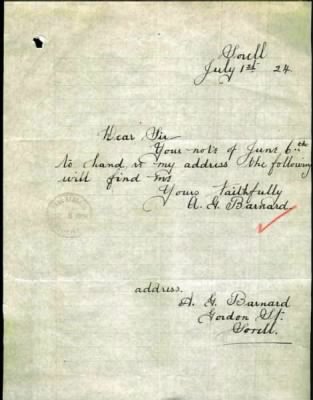 Sorell
July 1st 24
Dear Sir
Your not's of June 6th
to hand & my address the following
will find me
Yours faithfully
A. G. Barnard
address.
A. G. Barnard
Gordon St.
Sorell.